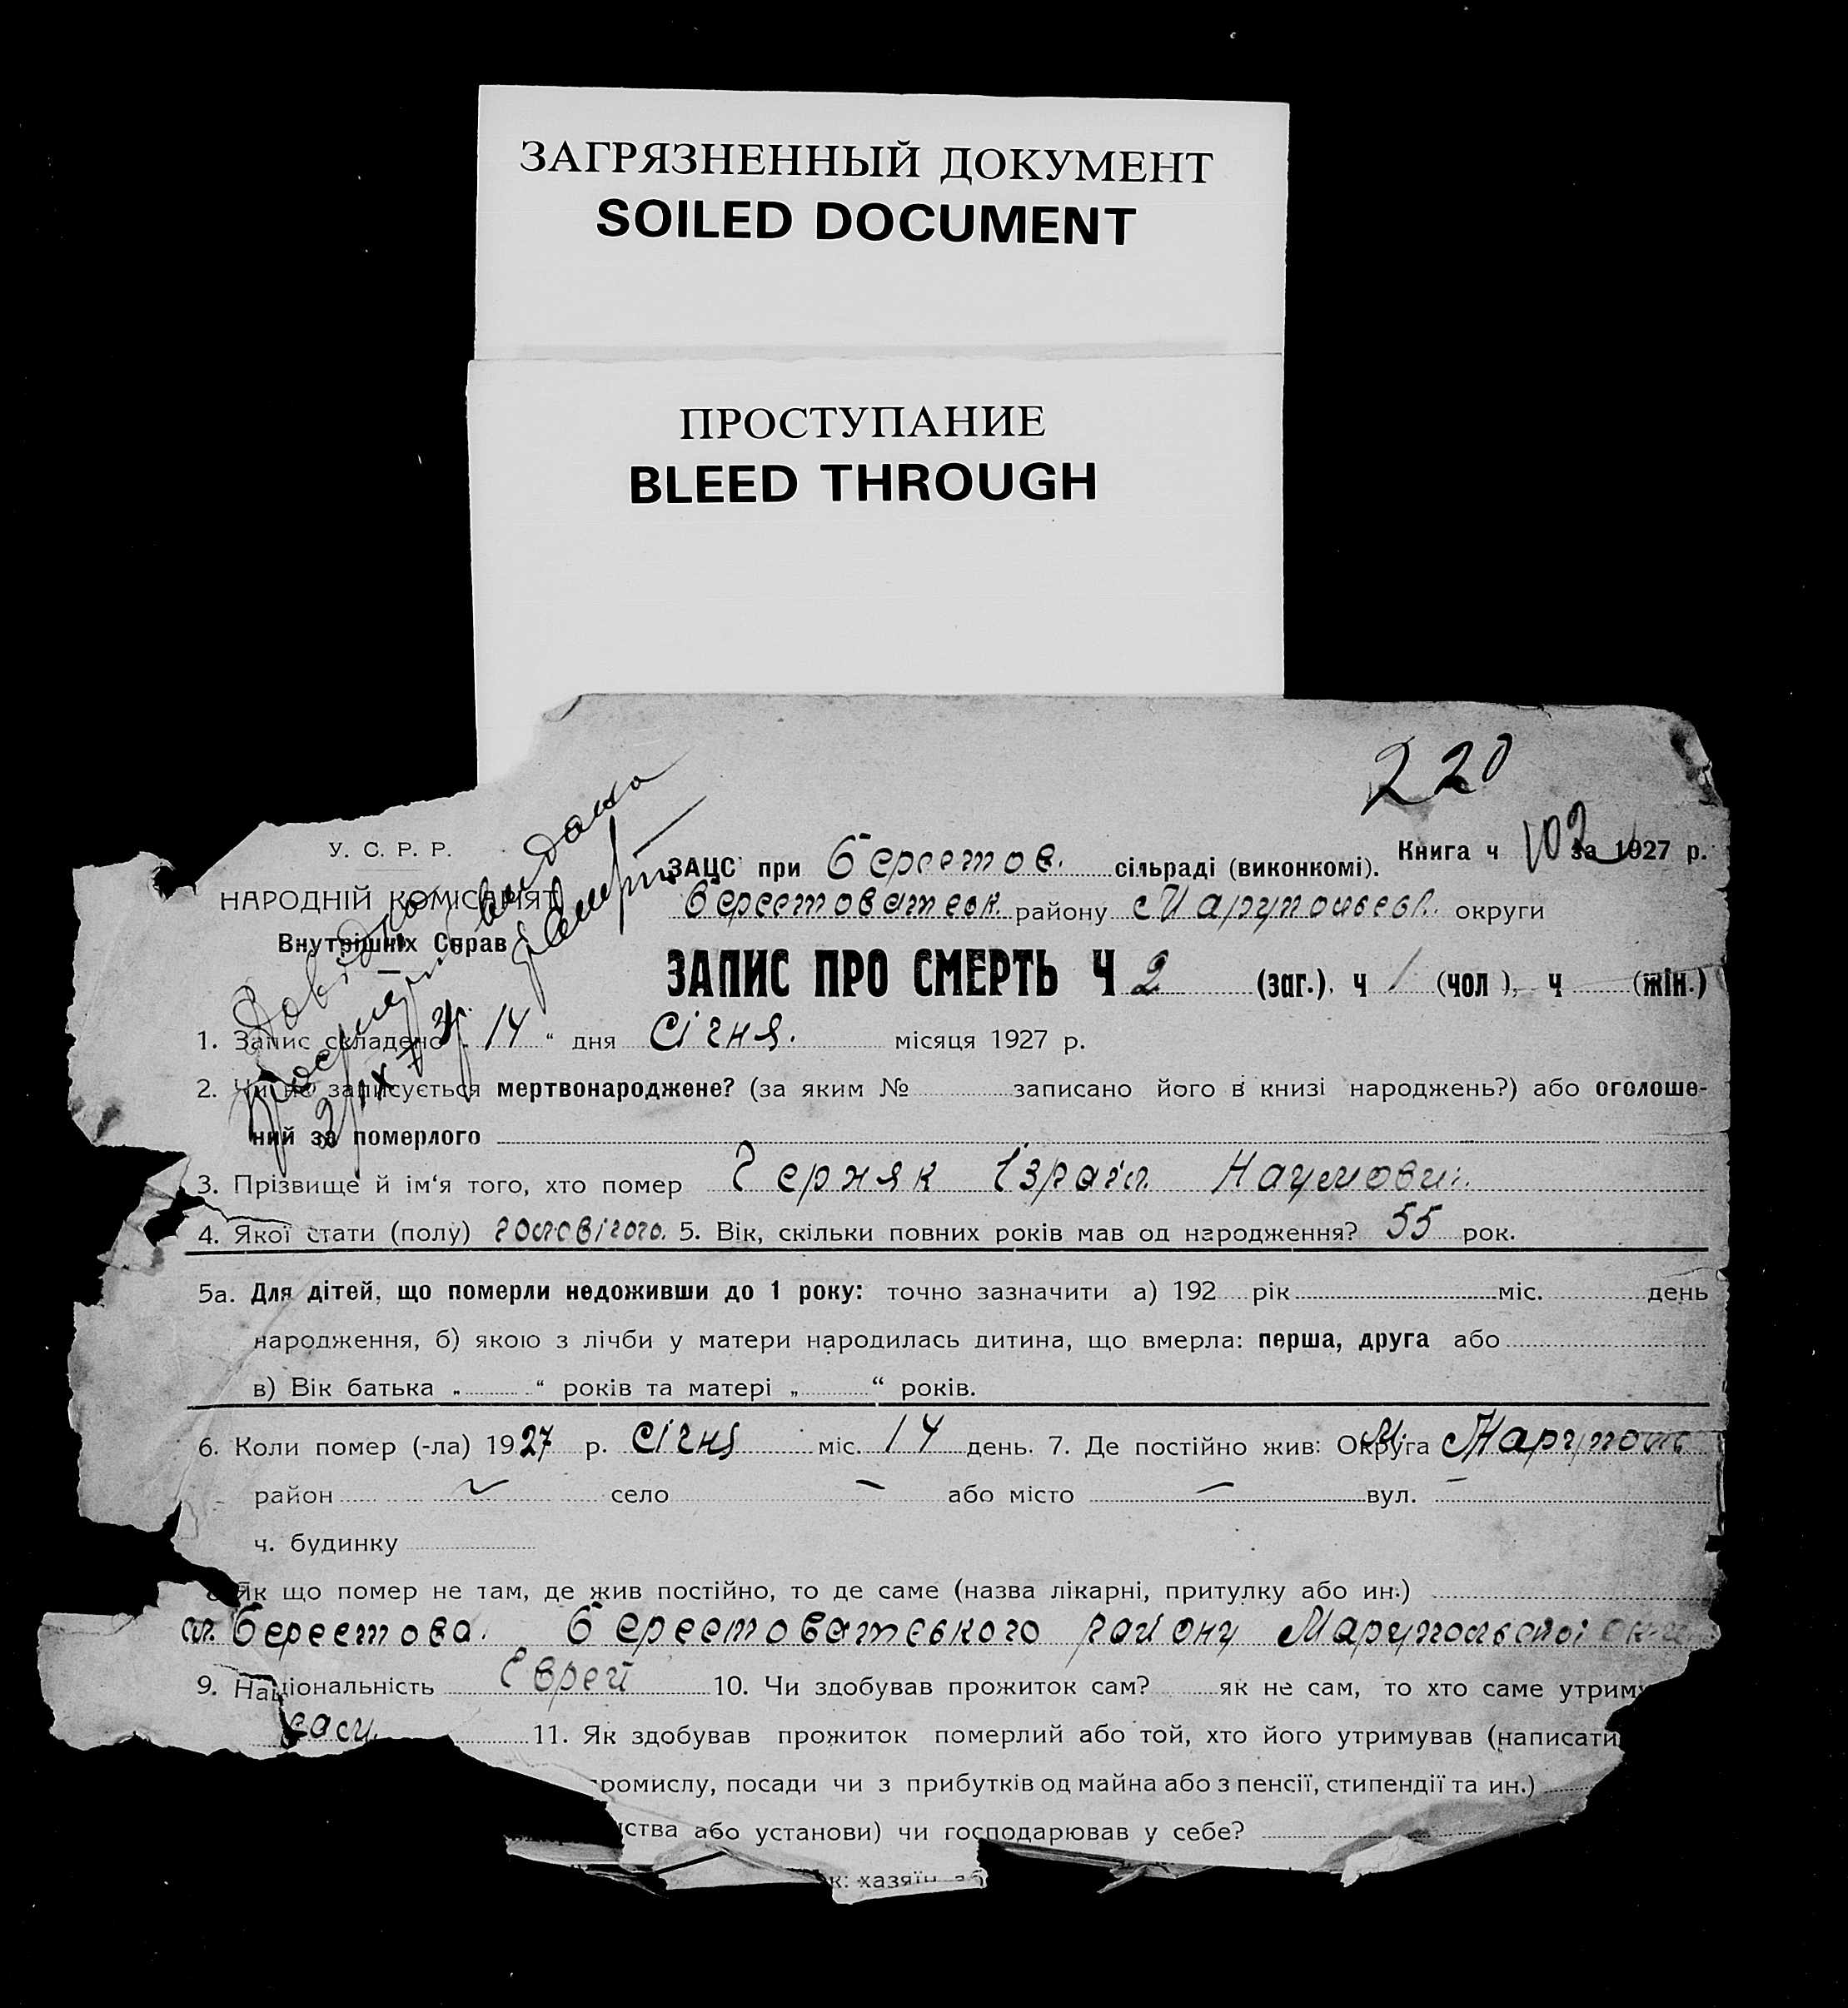 ЗАГРЯЗНЕННЫЙ ДОКУМЕНТ
SOILED DOCUMENT
ПРОСТУПАНИЕ
BLEED THROUGH
220
У. С. Р. Р.
НАРОДНІЙ КОМІСАРІЯТ
Внутрішніх Справ
Книга ч 103 за 1927 р.
ЗАЦС при Берестов. сільраді (виконкомі).
Берестоватськ. району Маріупольськ. округи
ЗАПИС ПРО СМЕРТЬ Ч 2 (заг.), ч 1 (чол), ч (жін.)
1. Запис складено 14 “ дня Січня. місяця 1927 р.
2. Чи не записується мертвонароджене? (за яким № записано його в книзі народжень?) або оголоше-
ний за померлого
3. Прізвище й ім‘я того, хто помер Черняк Ізраїл Наумович
4. Якої стати (полу) чоловічого. 5. Вік, скільки повних років мав од народження? 55 рок.
5а. Для дітей, що померли недоживши до 1 року: точно зазначити а) 192 рік міс. день
народження, б) якою з лічби у матери народилась дитина, що вмерла: перша, друга або
в) Вік батька „ “ років та матері „ “ років.
6. Коли помер (-ла) 1927 р. Січня міс. 14 день. 7. Де постійно жив: Округа М. Маріуполь
район — село — або місто — вул. —
ч. будинку
Як що помер не там, де жив постійно, то де саме (назва лікарні, притулку або ин.)
Берестова. Берестоватського району Маріупольської
9. Національність Єврей 10. Чи здобував прожиток сам? як не сам, то хто саме утриму
11. Як здобував прожиток померлий або той, хто його утримував (написати
промислу, посади чи з прибутків од майна або з пенсії, стипендії та ин.)
ства або установи) чи господарював у себе?
к: хазяїн